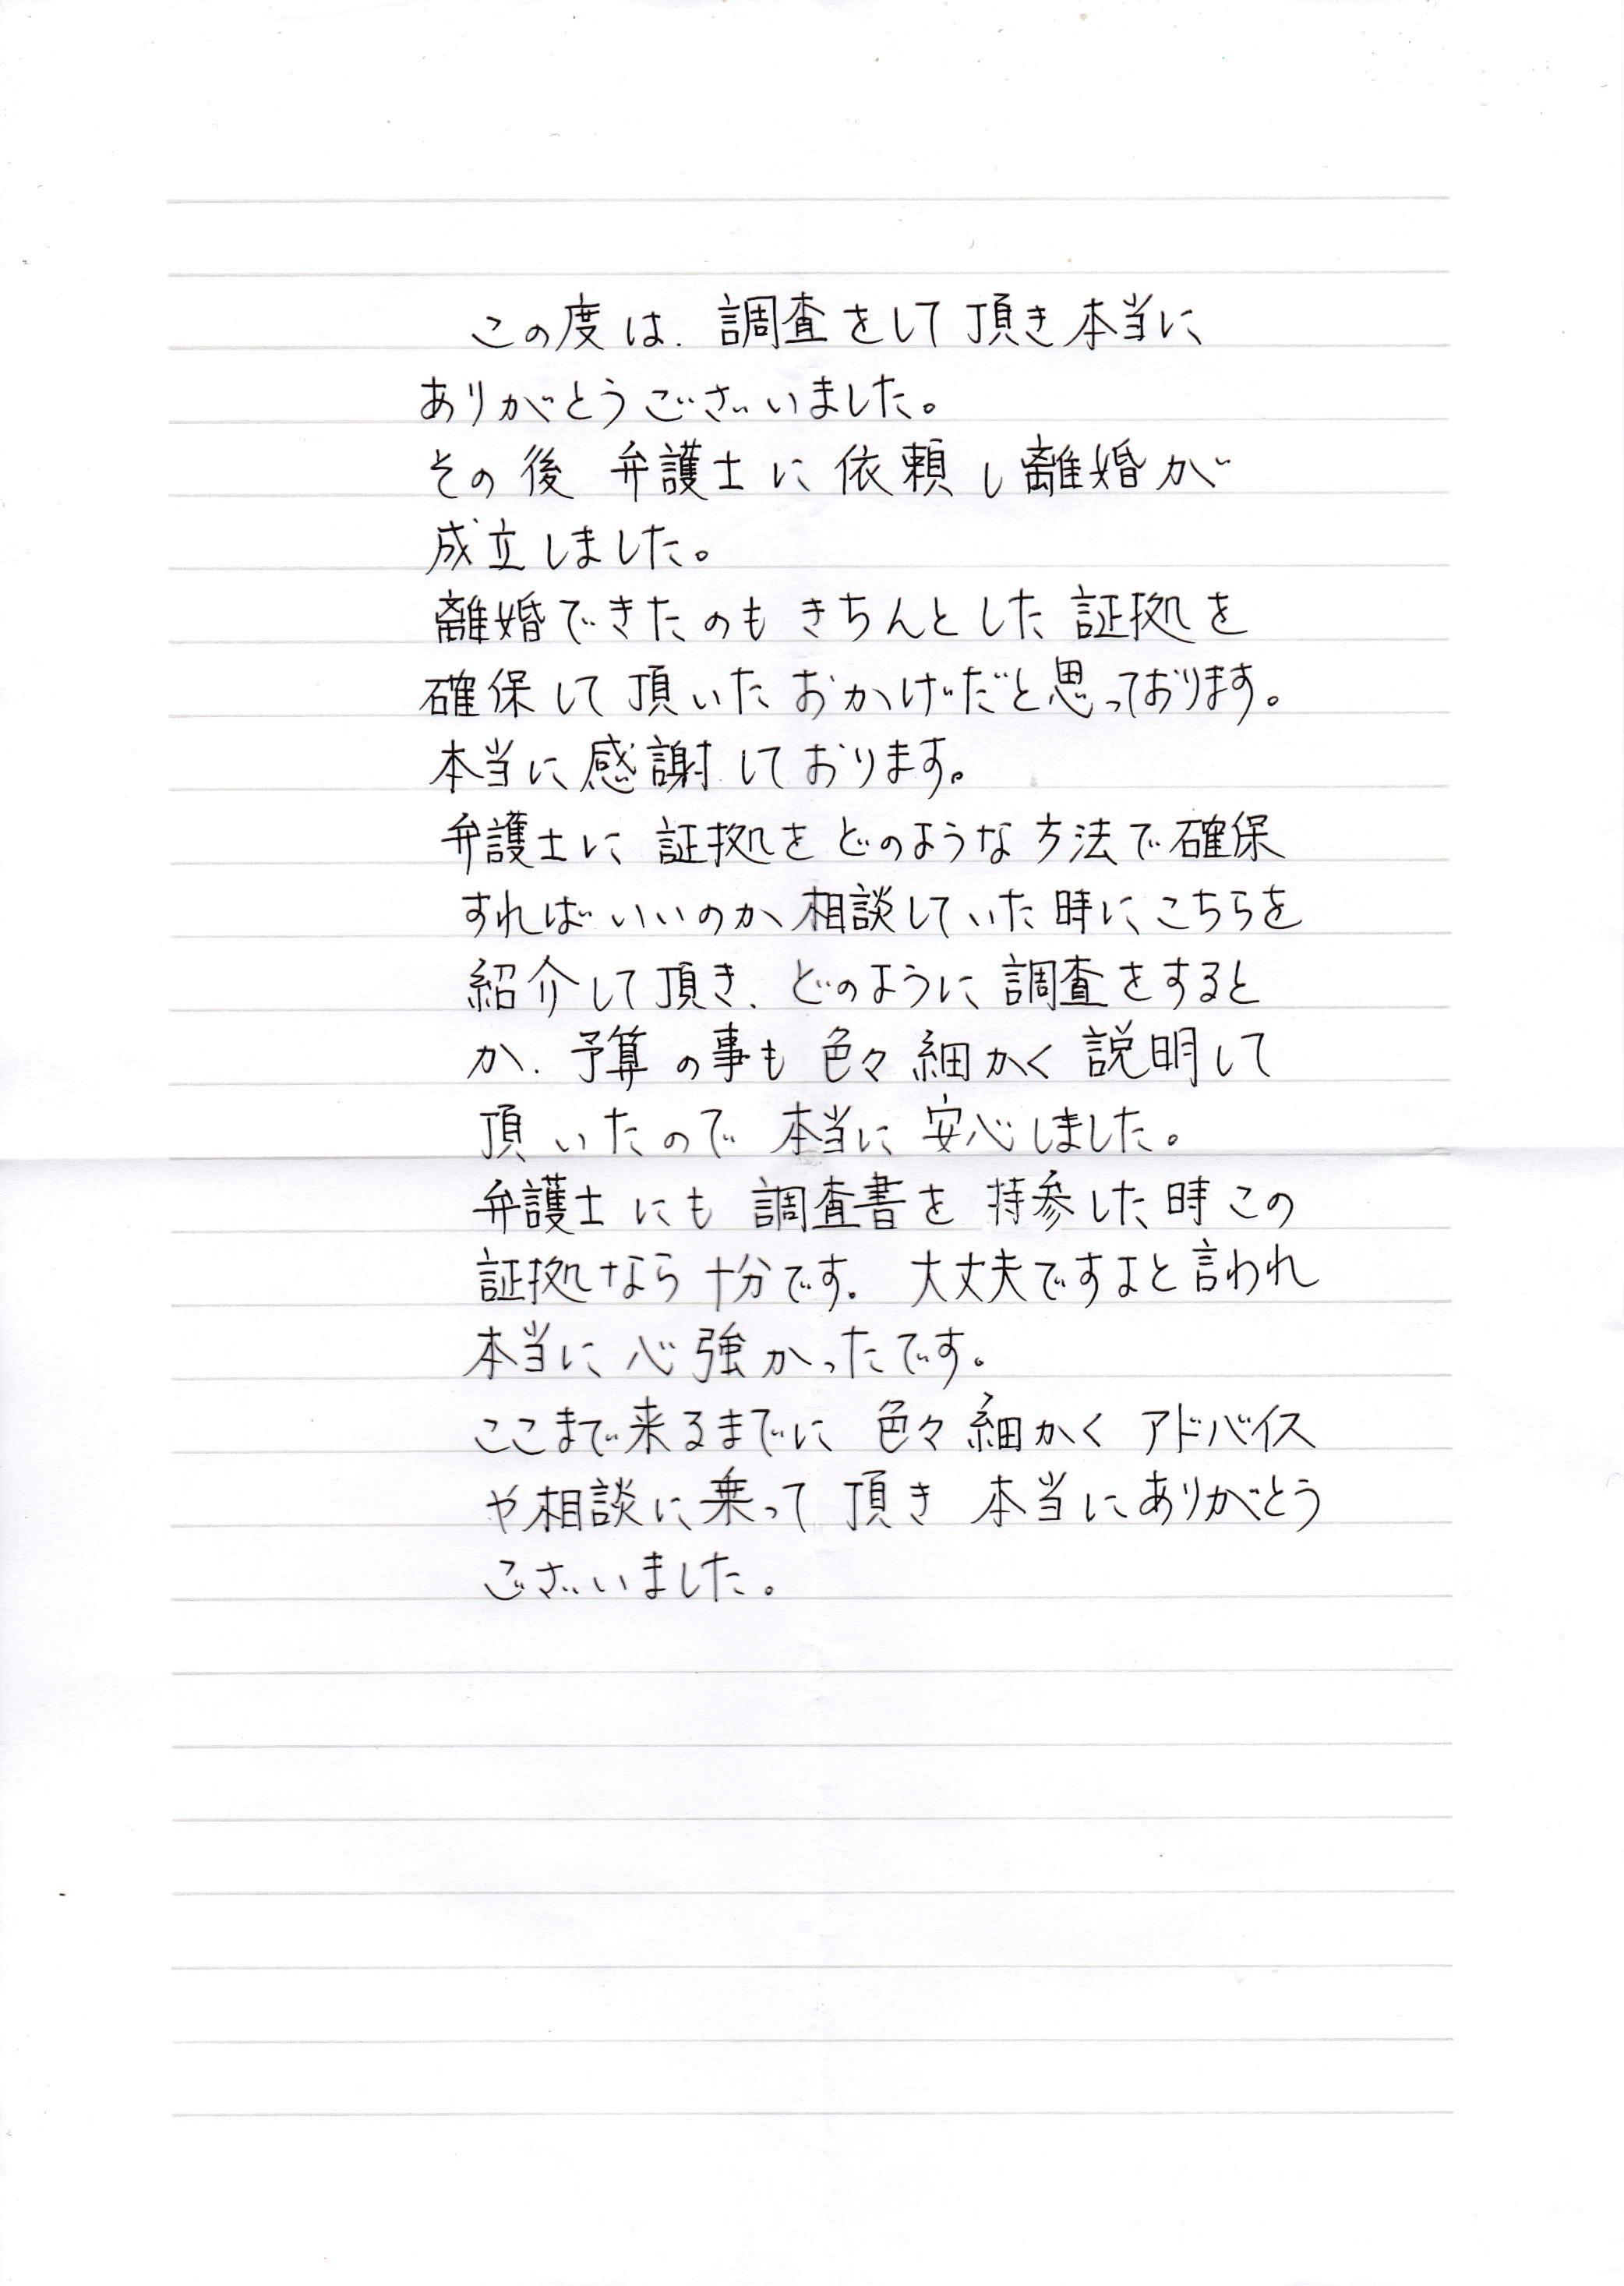 この度は、調査をして頂き本当に
ありがとうございました。
その後 弁護士に依頼し離婚が
成立しました。
離婚できたのも きちんとした証拠を
確保して頂いた おかげだと思っております。
本当に感謝しております。
弁護士に 証拠を どのような方法で確保
すればいいのか 相談していた時に、こちらを
紹介して頂き、どのように調査をすると
か、予算の事も 色々細かく説明して
頂いたので 本当に安心しました。
弁護士にも 調査書を 持参した時 この
証拠なら十分です。大丈夫ですよと言われ
本当に心強かったです。
ここまで来るまでに 色々細かく アドバイス
や相談に乗って頂き 本当にありがとう
ございました。